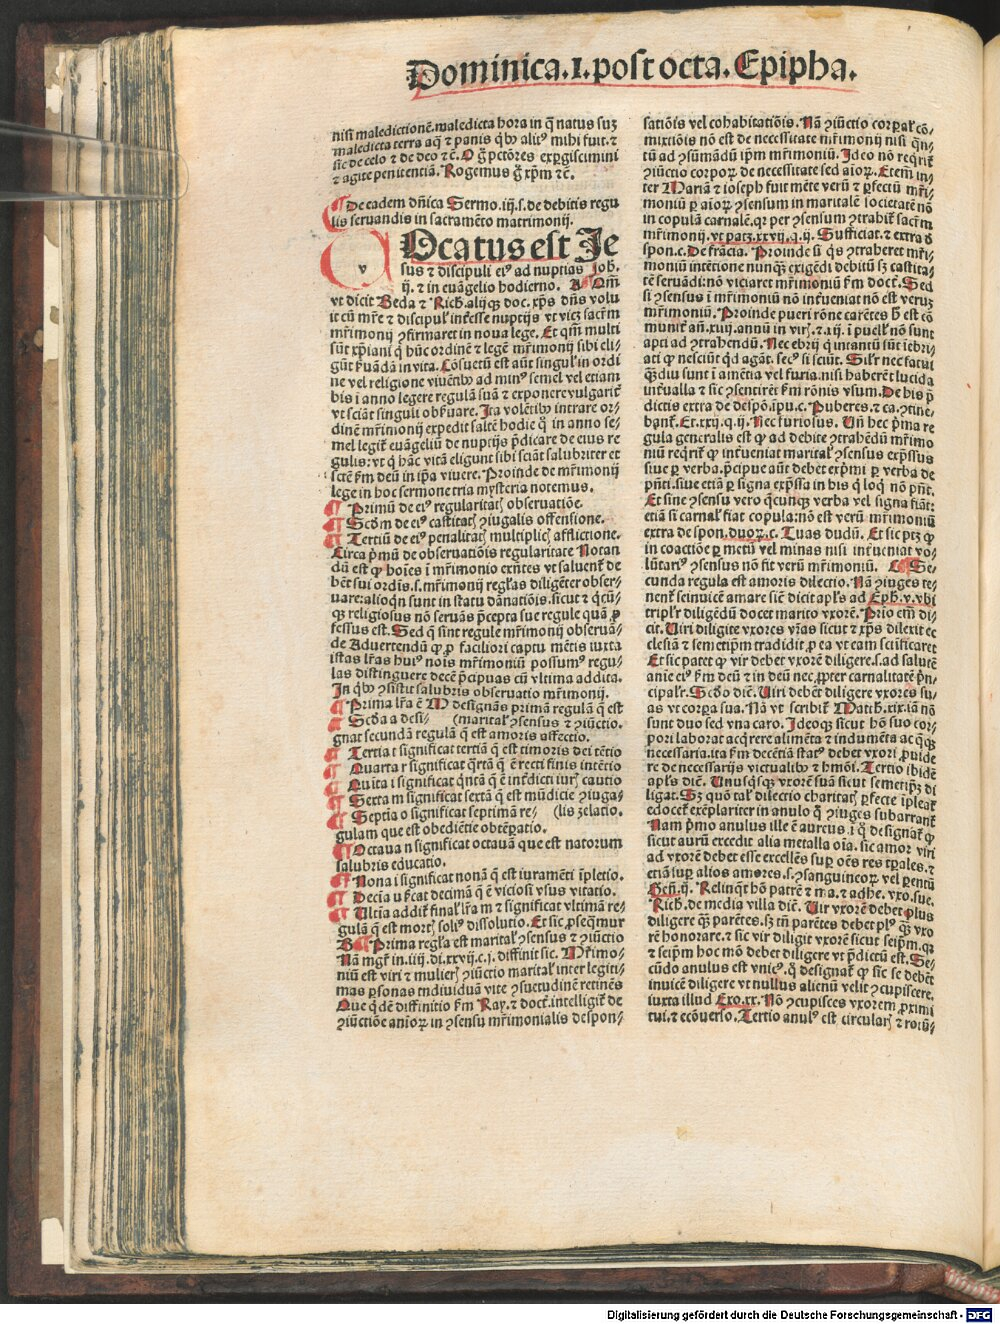 Dominica.1.post octa.Epipha.
nisi maledictionē.maledicta hora in q̄ natus suꝫ
maledicta terra aq̄ ⁊ panis qͥbꝰ alitꝰ mihi fuit.⁊
sic de celo ⁊ de deo ⁊c̄.O g̊ pctōres exp̱giscimini
⁊ agite penitentiā.Rogemus g̊ xp̄m ⁊c̄.
De eadem dn̄ica Sermo.iij.s.de debitis regu
lis seruandis in sacramēto matrimonij.
VOcatus est Je
sus ⁊ discipuli eiꝰ ad nuptias Joh.
ij.⁊ in euāgelio hodierno.
vt dicit Beda ⁊ Rich.alijqꝫ doc.xp̄s dn̄s volu
it cū mr̄e ⁊ discipul' inter̄esse nuptijs vt vicꝫ sacr̄m
mr̄imonij ꝯfirmaret in noua lege.Et qm̄ multi
sūt xp̄iani q̇ hūc ordinē ⁊ legē mr̄imonij sibi eli-
gūt seruādā in vita.Cōsuetū est aūt singul' in ordi
ne vel religione viuētibꝰ ad minꝰ semel vel etiam
bis i anno legere regulā suā ⁊ exponere vulgarit̄
vt sciāt singuli obseruare.Ita volētibꝰ intrare or-
dinē mr̄imonij expedit saltē hodie q̊ in anno se-
mel legit̄ euāgeliū de nuptijs p̄dicare de eius re
gulis:vt q̇ hāc vitā eligunt sibi sciāt salubriter et
sctē s̄m deū in ip̄a viuere.Proinde de mr̄imonij
lege in hoc sermone tria mysteria notemus.
¶ Primū de eiꝰ regularitatꝭ obseruatiōe.
¶ Scd̄m de eiꝰ castitatꝭ ꝯiugalis offensione.
¶ Tertiū de eiꝰ penalitatꝭ multiplicꝭ afflictione.
Circa p̄mū de obseruatiōis regularitate Notan
dū est ꝙ hoīes ī mr̄imonio exn̄tes vt saluent̄ de
bēt sui ordīs.s.mr̄imonij regl'as diligēter obser-
uare:alioqn̄ sunt in statu dānatiōis.sicut ⁊ q̇cū-
qꝫ religiosus nō seruās p̄cepta sue regule quā ꝓ
fessus est.Sed q̄ sint regule mr̄imonij obseruā-
de Aduertendū ꝙ ꝓ faciliori captu mētis iuxta
istas lr̄as huiꝰ nois mr̄imoniū possumꝰ regu-
las distinguere decē p̄cipuas cū vltima addita.
In qͥbꝰ ꝯsistit salubris obseruatio mr̄imonij.
¶ Prima lr̄a ē M designās primā regulā q̄ est
¶ Scd̄a a desi- (marital' ꝯsensus ⁊ ꝯiūctio.
gnat secundā regulā q̄ est amoris affectio.
¶ Tertia t significat tertiā q̄ est timoris dei tētio
¶ Quarta r significat qr̄tā q̄ ē recti finis intētio
¶ Quīta i significat qn̄tā q̄ ē intr̄dicti iurꝭ cautio
¶ Sexta m significat sextā q̄ est mūdicie ꝯiuga-
¶ Septīa o significat septimā re- (lis zelatio.
gulam que est obediētie obtēꝑatio.
¶ Octaua n significat octauā que est natorum
salubris educatio.
¶ Nona i significat nonā q̄ est iuramēti īpletio.
¶ Decīa u s̄cat decimā q̄ ē viciosi vsus vitatio.
¶ Vltīa addit̄ final' lr̄a m ⁊ significat vltimā re-
gulā q̄ est mortꝭ solꝰ dissolutio.Et sic ꝓseqmur
Prima regl'a est marital' ꝯsensus ⁊ ꝯiūctio
Nā mgr̄ in.iiij.di.xxvij.c.j.diffinit sic.Mr̄imo-
niū est viri ⁊ mulierꝭ ꝯiūctio marital' inter legiti-
mas ꝑsonas indiuiduā vite ꝯsuetudinē retinēs
Que q̇dē diffinitio s̄m Ray.⁊ doct̄.intelligit̄ de
ꝯiūctiōe aniorꝝ in ꝯsensu mr̄imonialis despon-
satiōis vel cohabitatiōis.Nā ꝯiūctio corꝑal' cō-
mixtiōis nō est de necessitate mr̄imonij nisi qn̄-
tū ad ꝯsūmādū ip̄m mr̄imoniū.Ideo nō reqrit̄
ꝯiūctio corporꝝ de necessitate sed aiorꝝ.Etem̄ in-
ter Mariā ⁊ ioseph fuit mēte verū ⁊ ꝑfectū mr̄i-
moniū ꝑ aiorꝝ ꝯsensum in maritalē societatē nō
in copulā carnalē.qr ꝑ ꝯsensum ꝯtrahit̄ sacr̄m
mr̄imonij.vt patꝫ.xxvij.q.ij.Sufficiat.⁊ extra d̄
spon.c.De frācia.Proinde si q̇s ꝯtraheret mr̄i-
moniū intētione nunqꝫ exigēdi debitū sꝫ castita-
tē seruādi:nō viciaret mr̄imoniū s̄m doct̄.Sed
si ꝯsensus ī mr̄imoniū nō inter̄ueniat nō est verū
mr̄imoniū.Proinde pueri rōne carētes
apti ad ꝯtrahendū.Nec ebrij q̇ intantū sūt īebri-
ati ꝙ nesciūt qd agāt.secꝰ si sciūt.Silr̄ nec fatui
qꝫdiu sunt ī amētia vel furia.nisi haberēt lucida
inter̄ualla ⁊ sic ꝯsentirēt s̄m rōnis vsum.De his p̄
dictis extra de despō.īpu.c.Puberes.⁊ ca.ꝯtine-
bant̄.Et.xxij.q.ij.Nec furiosus.Un̄ hec p̄ma re
gula generalis est ꝙ ad debite ꝯtrahēdū mr̄imo
niū reqrit̄ ꝙ inter̄ueniat marital' ꝯsensus exp̄ssus
siue ꝑ verba.p̄cipue aūt debet exp̄mi ꝑ verba de
pn̄ti.siue etiā ꝑ signa exp̄ssa in his q̇ loq̇ nō pn̄t.
Et sine ꝯsensu vero q̇cunqꝫ verba vel signa fiāt:
etiā si carnal' fiat copula:nō est verū mr̄imoniū
extra de spon.duorꝝ.c.Tuas dudū.Et sic ptꝫ ꝙ
in coactiōe ꝑ metū vel minas nisi inter̄ueniat vo-
lūtariꝰ ꝯsensus nō fit verū mr̄imoniū. ¶ Se-
cunda regula est amoris dilectio.Nā ꝯiuges te-
nent̄ seinuicē amare siē dicit apl's ad Eph.v.vbi
tripl'r diligēdū docet marito vxorē.Prio em̄ di-
cit.Uiri diligite vxores vr̄as sicut ⁊ xp̄s dilexit ec
clesiā ⁊ semetip̄m tradidit ꝓ ea vt eam sc̄ificaret
Et sic patet ꝙ vir debet vxorē diligere.s.ad salutē
anīe eiꝰ s̄m deū ⁊ in deū nec ꝓpter carnalitatē p̄n-
cipalr̄.Scd̄o diē.Uiri debēt diligere vxores su-
as vt corꝑa sua.Nā vt scribit̄ Matth.xix.iā nō
sunt duo sed vna caro.Ideoqꝫ sicut hō suo cor-
pori laborat acq̇rere alimēta ⁊ indumēta ac q̄qꝫ
necessaria.ita s̄m decētiā statꝰ debet vxori ꝓuide
re de necessarijs victualibꝰ ⁊ hmōi.Tertio ibidē
apl's diē.Unusqͥsqꝫ vxorē suā sicut semetip̄ꝫ di
ligat.Sꝫ quō tal' dilectio charitatꝭ ꝑfecte īpleat̄
edocet̄ exēplariter in anulo q̊ ꝯiuges subarrant̄
Nam p̄mo anulus ille ē aureus.ī q̊ designat̄ ꝙ
sicut aurū excedit alia metalla oīa.sic amor viri
ad vxorē debet esse excellēs suꝑ oēs res tꝑales.⁊
etiā suꝑ alios amores.s.ꝯsanguineorꝝ vel ꝑentū
Gen̄.ij.Relinqt̄ hō patrē ⁊ ma.⁊ adhe.vxo.sue.
Rich.de media villa diē.Uir vxorē debet plus
diligere qꝫ parētes.sꝫ tn̄ parētes debet plꝰ qꝫ vxo
rē honorare.⁊ sic vir diligit vxorē sicut seip̄m.qꝛ
⁊ seip̄m hoc mō debet diligere vt p̄dictū est.Se-
cūdo anulus est vnicꝰ.q̊ designat̄ ꝙ sic se debēt
inuicē diligere vt nullus alienū velit ꝯcupiscere.
iuxta illud Exo.xx.Nō ꝯcupisces vxorem ꝓximi
tui.⁊ ecōuerso.Tertio anulꝰ est circularꝭ ⁊ rotū-
Digitalisierung gefördert durch die Deutsche Forschungsgemeinschaft - DFG